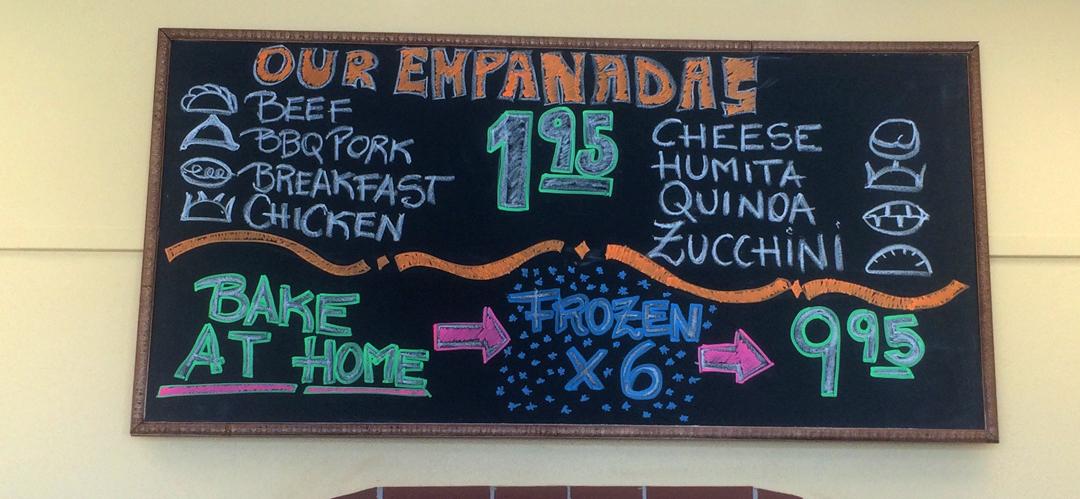 OUR EMPANADAS
BEEF
BBQ PORK
BREAKFAST
CHICKEN
1.95
CHEESE
HUMITA
QUINOA
ZUCCHINI
BAKE
AT HOME
FROZEN
X 6
9.95